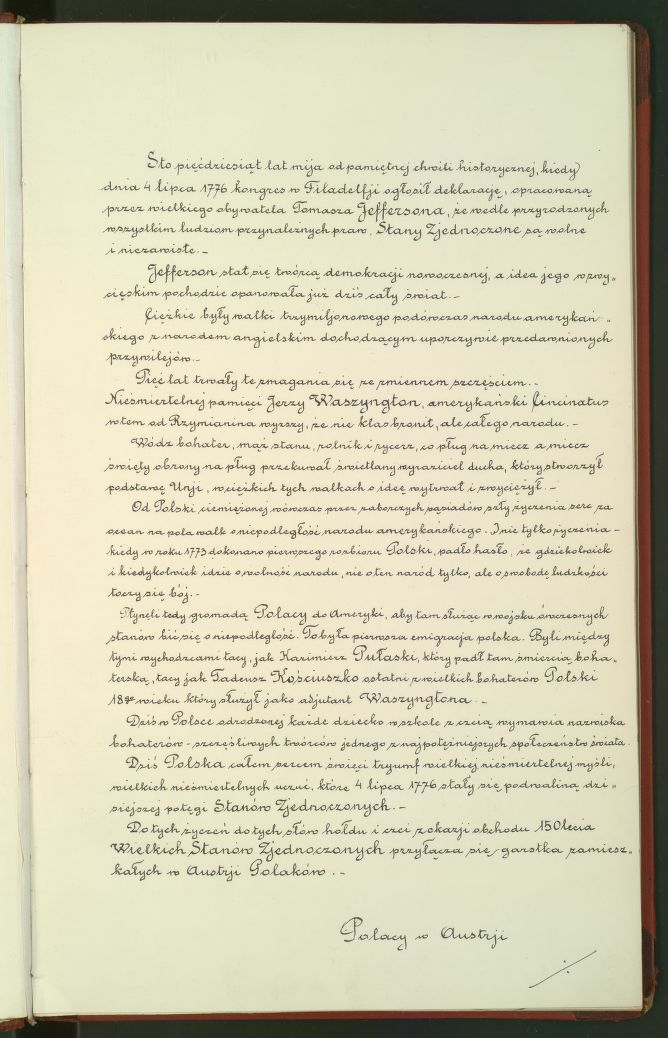 Sto pięćdziesiąt lat mija od pamiętnej chwili historycznej, kiedy
dnia 4 lipca 1776 kongres w Filadelfji ogłosił deklarację, opracowaną
przez wielkiego obywatela Tomasza Jeffersona, że wedle przyrodzonych
wszystkim ludziom przynależnych praw, Stany Zjednoczone są wolne
i niezawisłe. -
Jefferson stał się twórcą demokracji nowoczesnej, a idea jego w zwy„
cięskim pochodzie opanowała już dziś cały świat. -
Ciężkie były walki trzymiljonowego podówczas narodu amerykań„
skiego z narodem angielskim dochodzącym uporczywie przedawnionych
przywilejów. -
Pięć lat trwały te zmagania się ze zmiennem szczęściem. -
Nieśmiertelnej pamięci Jerzy Waszyngton, amerykański Cincinatus
w tem od Rzymianina wyższy, że nie klas bronił, ale całego narodu. -
Wódz bohater, mąż stanu, rolnik i rycerz, co pług na miecz a miecz
święty obrony na pług przekuwał, świetlany wyraziciel ducha, który stworzył
podstawę Unji, w ciężkich tych walkach o ideę wytrwał i zwyciężył. -
Od Polski ciemiężonej wówczas przez zaborczych sąsiadów szły życzenia serc za
ocean na pola walk o niepodległość narodu amerykańskiego. I nie tylko życzenia -
kiedy w roku 1773 dokonano pierwszego rozbioru Polski, padło hasło, że gdziekolwiek
i kiedykolwiek idzie o wolność narodu, nie o ten naród tylko, ale o swobodę ludzkości
toczy się bój. -
Płynęli tedy gromadą Polacy do Ameryki, aby tam służąc w wojsku ówczesnych
stanów bić się o niepodległość. To była pierwsza emigracja polska. Byli między
tymi wychodzcami tacy, jak Kazimierz Pułaski, który padł tam śmiercią boha„
terską, tacy jak Tadeusz Kościuszko ostatni z wielkich bohaterów Polski
18go wieku który służył jako adjutant Waszyngtona. -
Dziś w Polsce odrodzonej każde dziecko w szkole z czcią wymawia nazwiska
bohaterów - szczęśliwych twórców jednego z najpotężniejszych społeczeństw świata.
Dziś Polska całem sercem święci tryumf wielkiej nieśmiertelnej myśli,
wielkich nieśmiertelnych uczuć, które 4 lipca 1776 stały się podwaliną dzi„
siejszej potęgi Stanów Zjednoczonych. -
Do tych życzeń do tych słów hołdu i czci z okazji obchodu 150 lecia
Wielkich Stanów Zjednoczonych przyłącza się garstka zamiesz„
kałych w Austrji Polaków. -
Polacy w Austrji